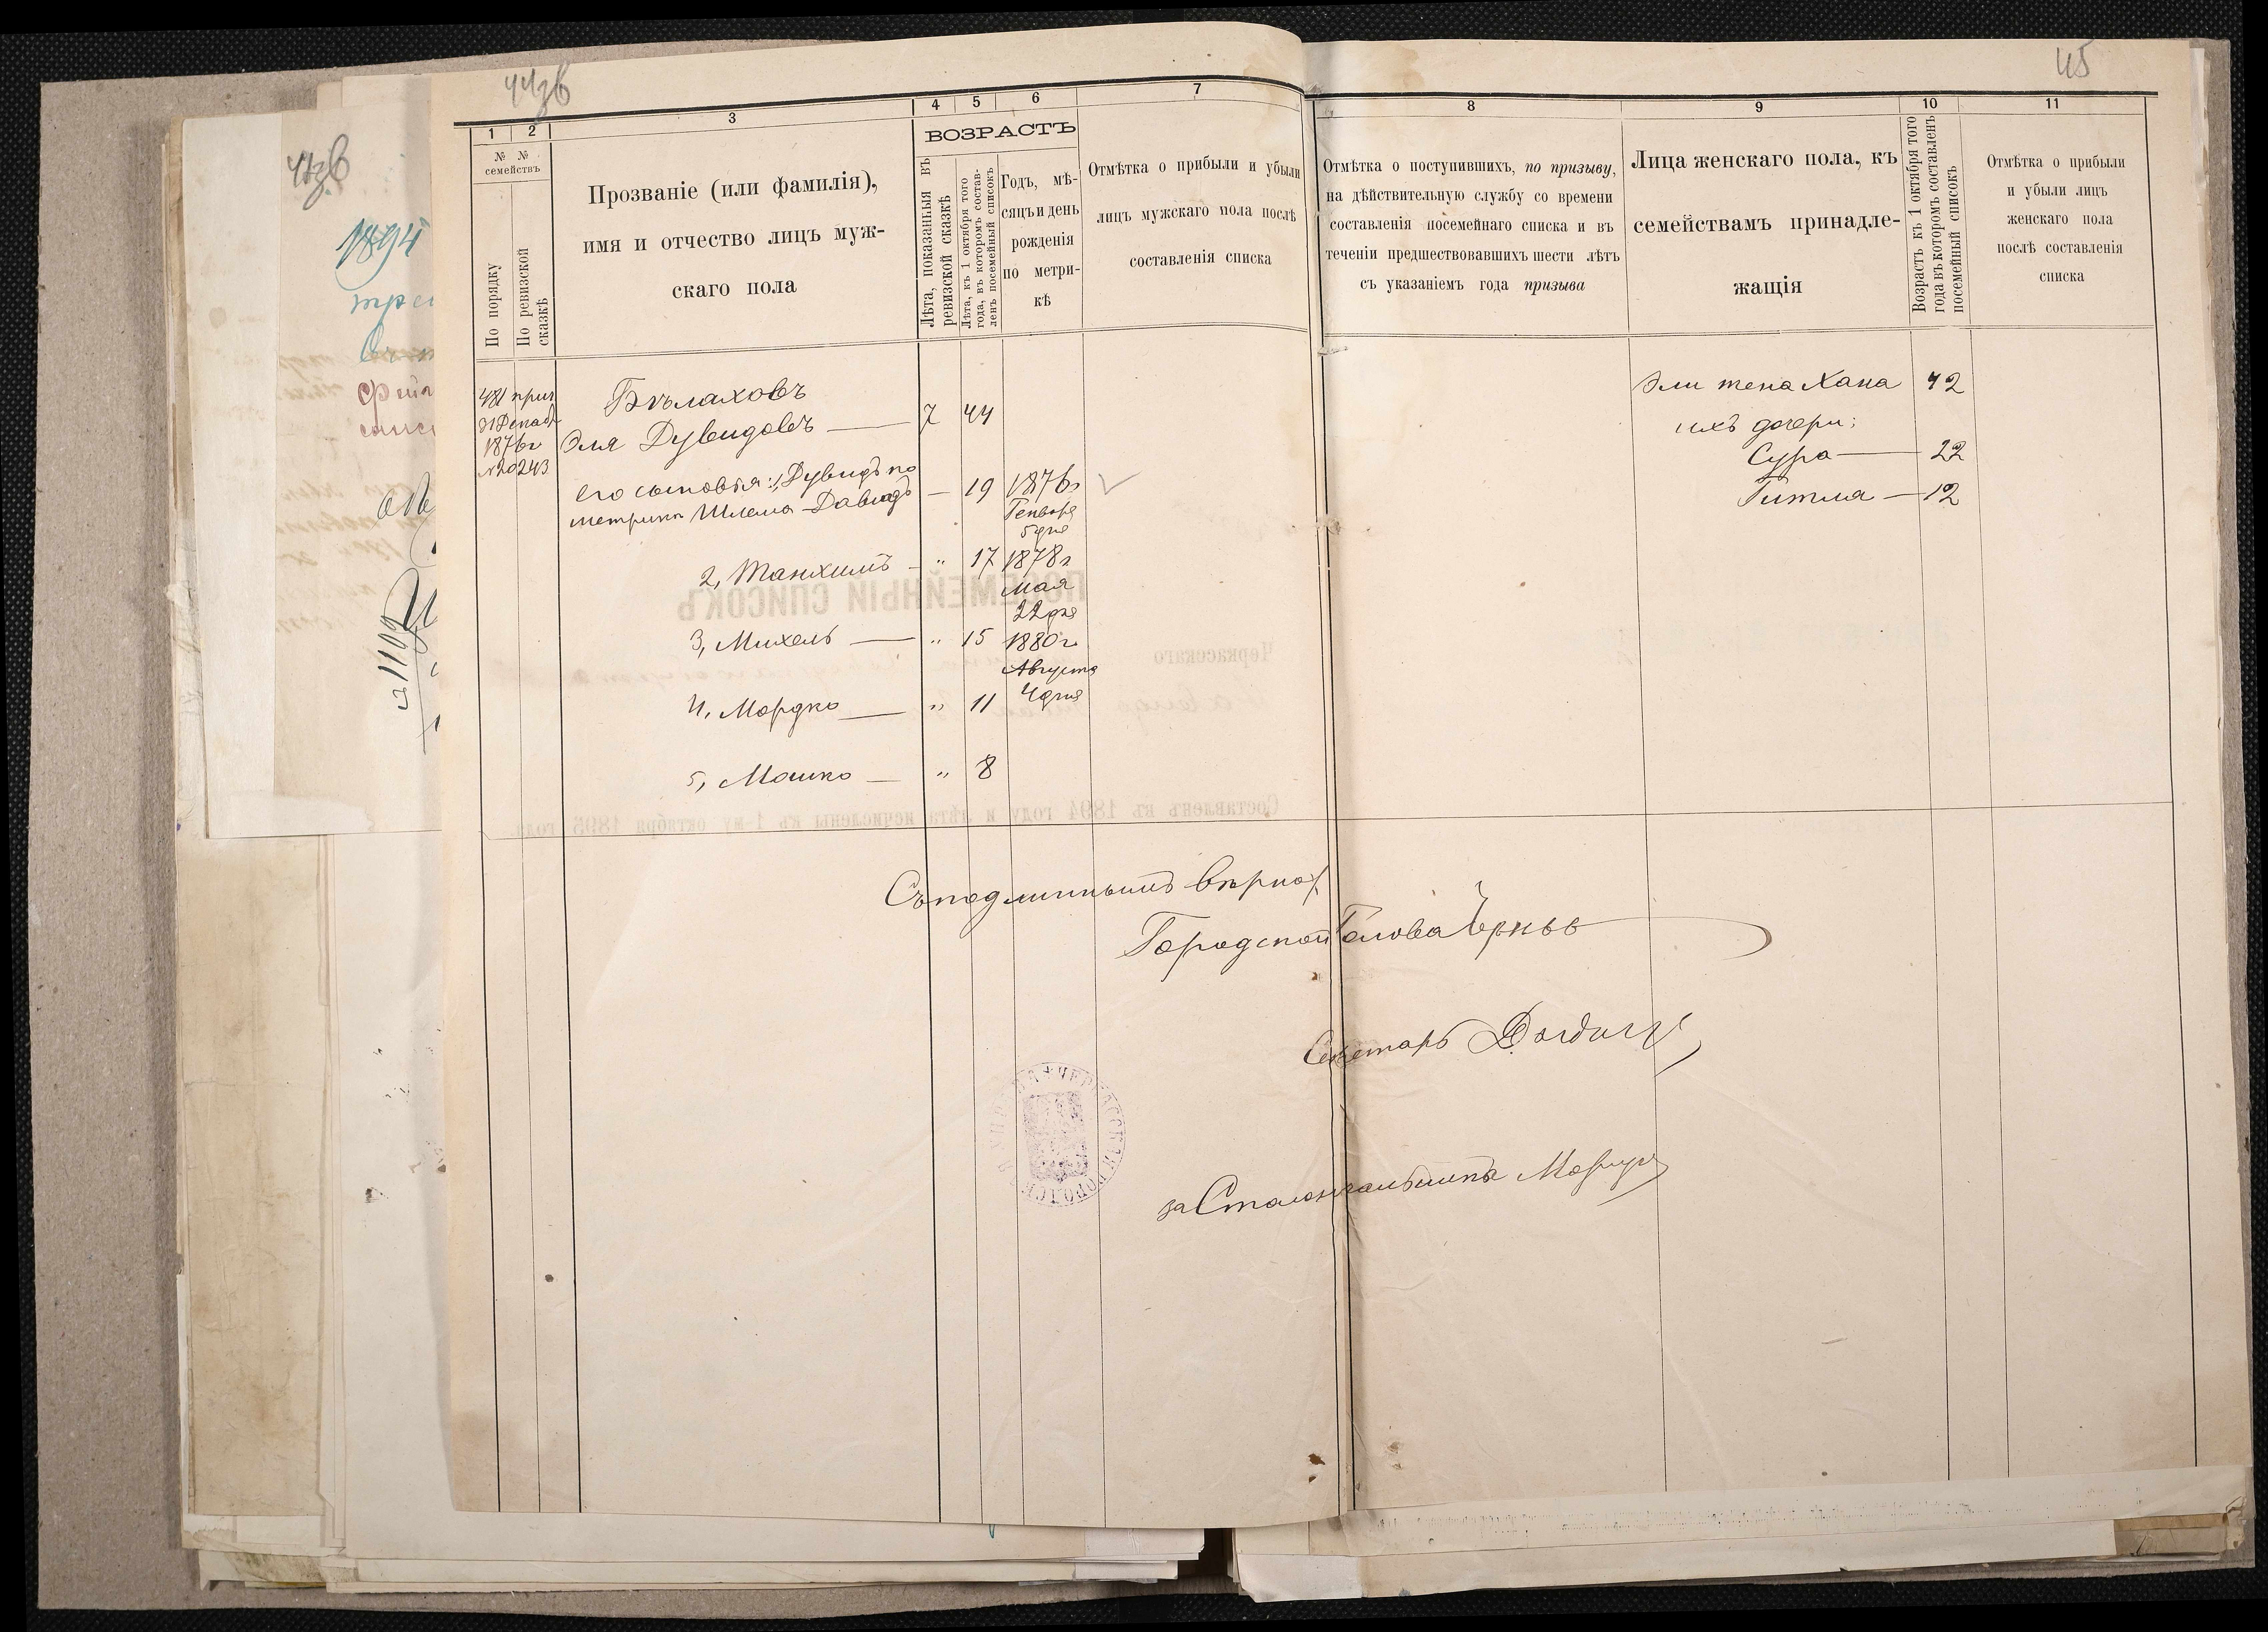 44зв
45
44зв
1894
1 2 3 4 5 6 7 8 9 10 11
№ №
семействъ
По порядку
По ревизской
сказкѣ
Прозваніе (или фамилія),
имя и отчество лицъ муж-
скаго пола
ВОЗРАСТЪ
Лѣта, показанныя въ
ревизской сказкѣ
Лѣта, къ 1 октября того
года, въ которомъ состав-
ленъ посемейный списокъ
Годъ, мѣ-
сяцъ и день
рожденія
по метри-
кѣ
Отмѣтка о прибыли и убыли
лицъ мужскаго пола послѣ
составленія списка
Отмѣтка о поступившихъ, по призыву,
на дѣйствительную службу со времени
составленія посемейнаго списка и въ
теченіи предшествовавшихъ шести лѣтъ
съ указаніемъ года призыва
Лица женскаго пола, къ
семействамъ принадле-
жащія
Возрастъ къ 1 октября того
года въ которомъ составленъ
посемейный списокъ
Отмѣтка о прибыли
и убыли лицъ
женскаго пола
послѣ составленія
списка
481 прич
31 Декаб
1876 г
№20243
Бѣлаховъ
Эля Дувидовъ — 7 44
Его сыновья: 1, Дувидъ по
метрикѣ Шлема-Давидъ — 19 1876 г
Генваря
5 дня
2, Танхимъ — " 17 1878 г
Мая
22 дня
3, Михель — " 15 1880 г
Августа
4 дня
4, Мордко — " 11
5, Мошко — " 8
Эли жена Хана 42
ихъ дочери:
Сура — 22
Гитля — 12
ПОСЕМЕЙНЫЙ СПИСОКЪ
Черкасскаго
Составленъ къ 1894 году и лѣта исчислены къ 1-му октября 1895 года.
Съ подлиннымъ вѣрно:
Городской Голова
Секретарь
за Столоначальника
ЧЕРКАССКАЯ ГОРОДСКАЯ УПРАВА
№ 1109